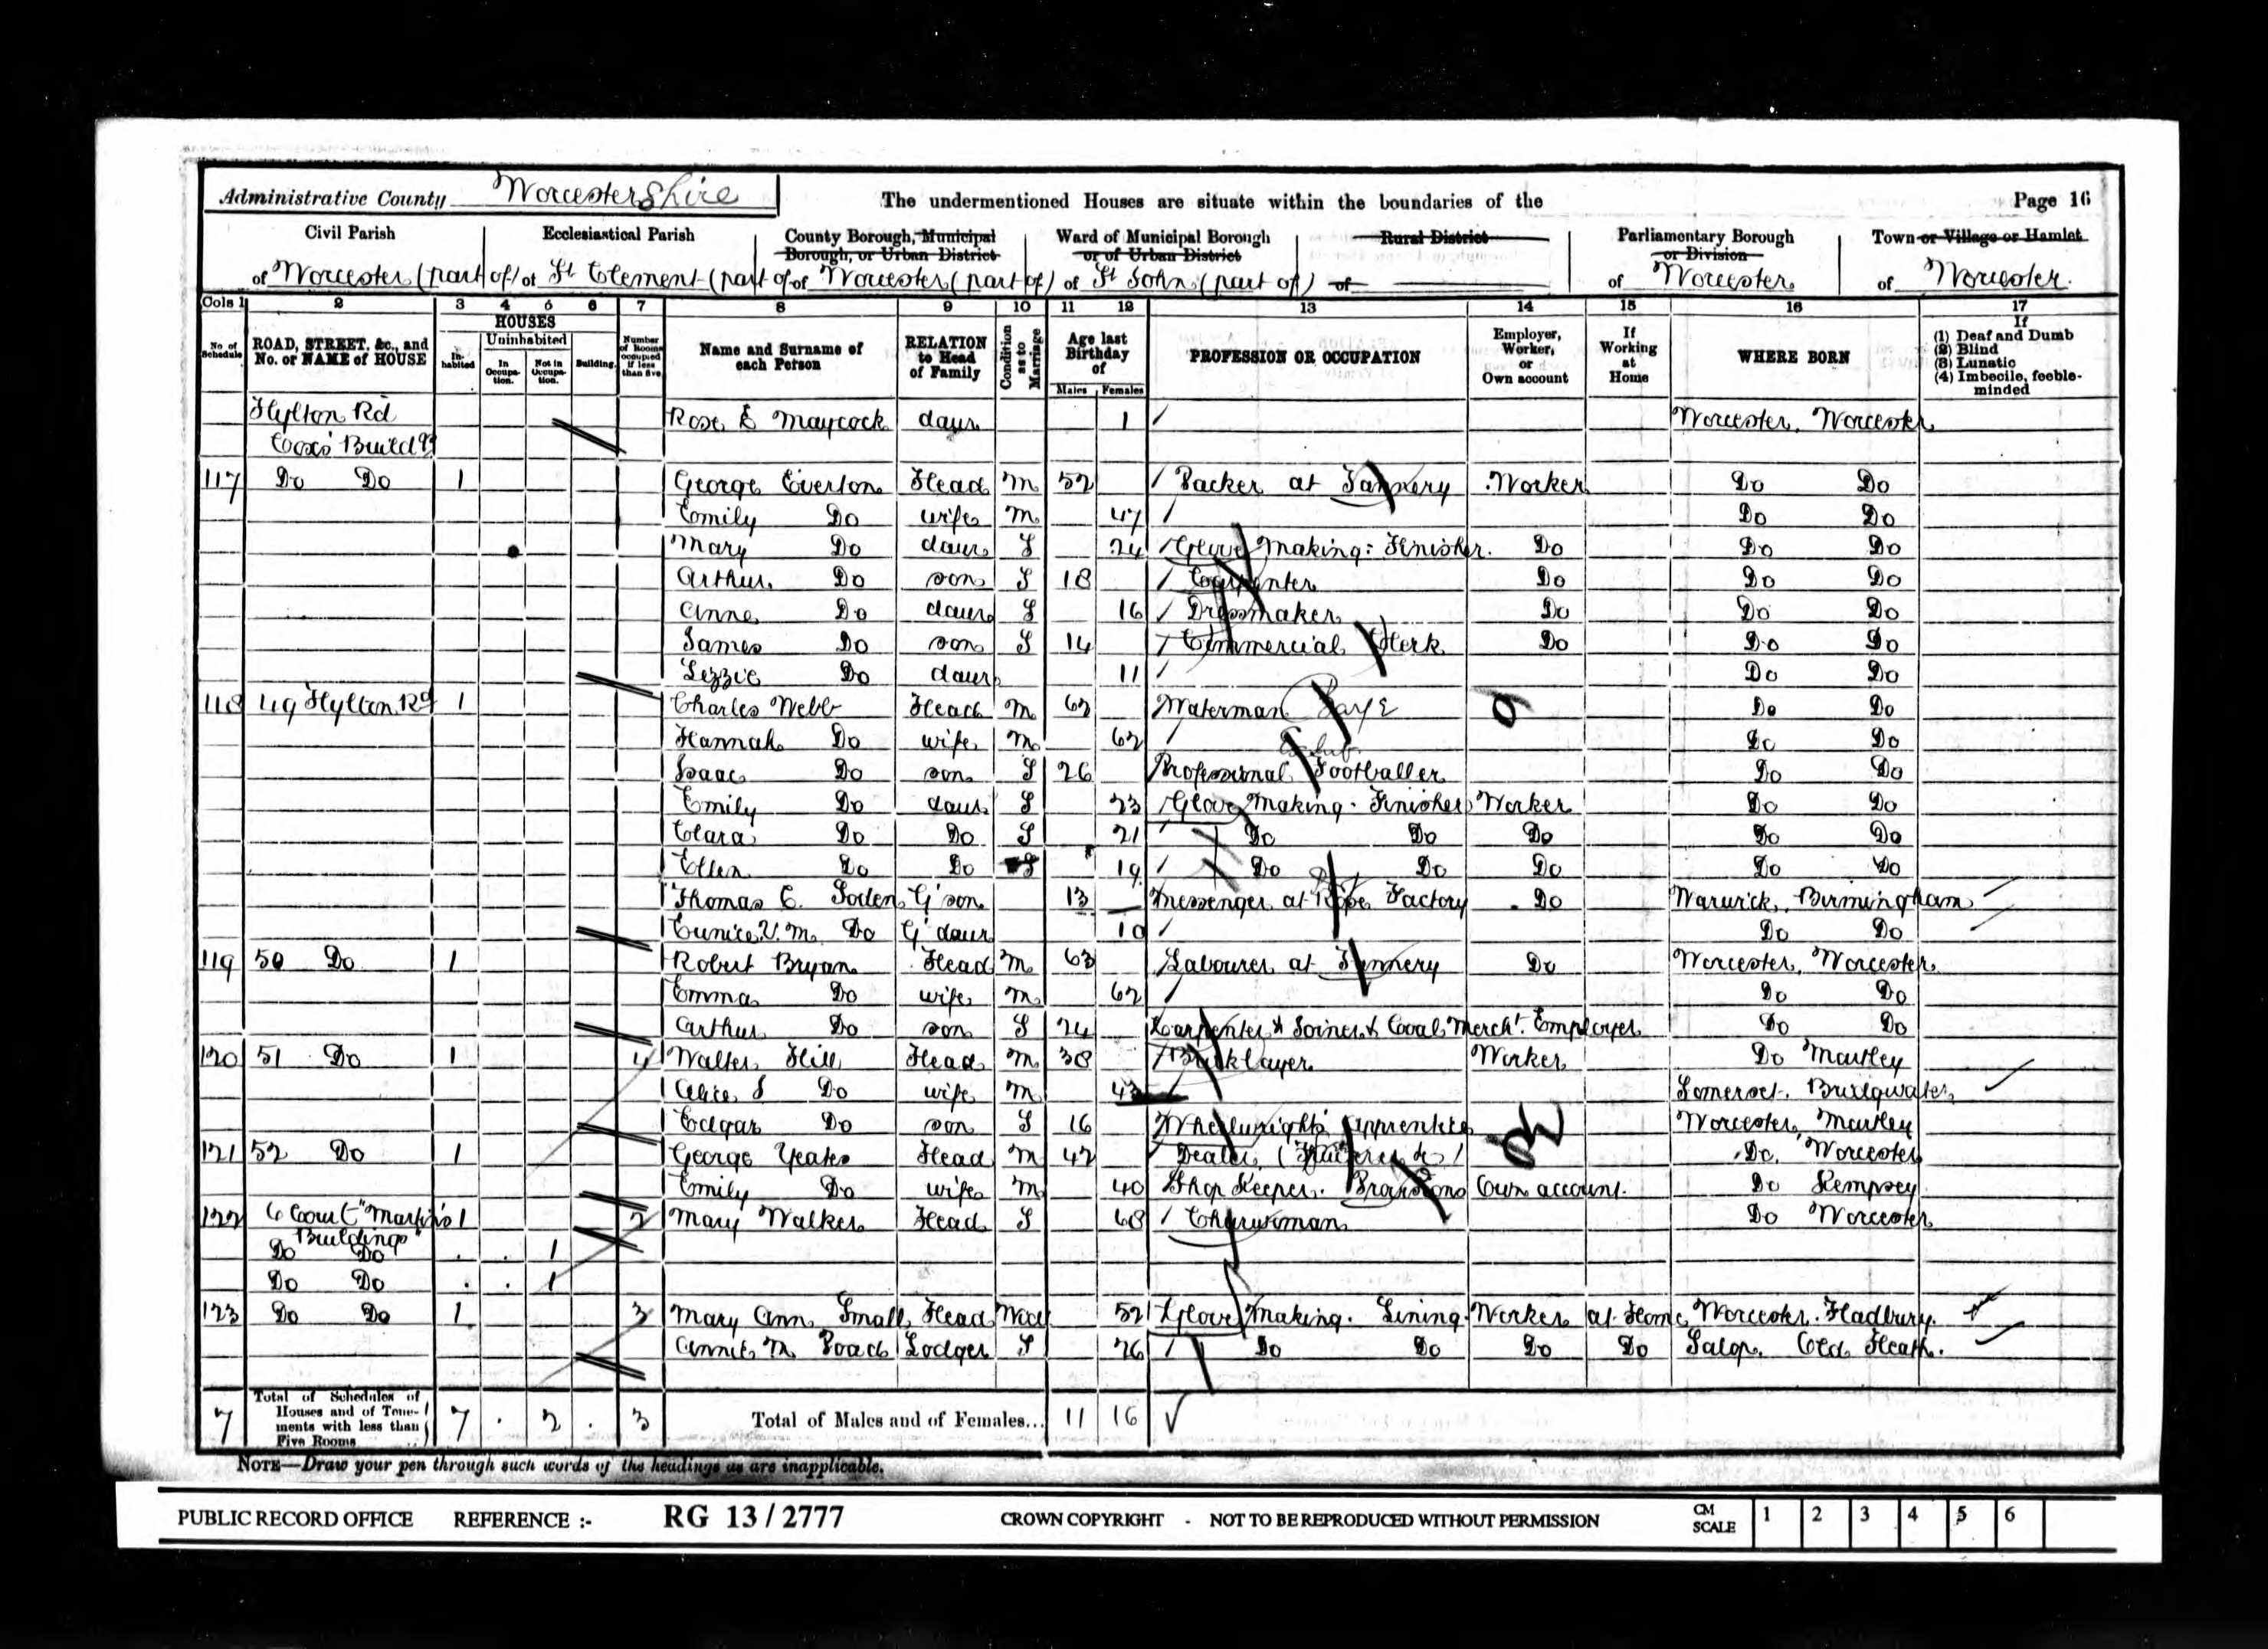 Administrative County Worcestershire The undermentioned Houses are situate within the boundaries of the Page 16
Civil Parish Ecclesiastical Parish County Borough, Municipal Borough, or Urban District Ward of Municipal Borough or of Urban District Rural District Parliamentary Borough or Division Town or Village or Hamlet
of Worcester (part of) of St Clement (part of) of Worcester (part of) of St John (part of) of of Worcester of Worcester.
Cols 1 2 3 4 5 6 7 8 9 10 11 12 13 14 15 16 17
No. of Schedule ROAD, STREET, &c., and No. or NAME of HOUSE HOUSES Inhabited Uninhabited In Occupation. Not in Occupation. Building. Number of Rooms occupied if less than five Name and Surname of each Person RELATION to Head of Family Condition as to Marriage Age last Birthday of Males Females PROFESSION OR OCCUPATION Employer, Worker, or Own account If Working at Home WHERE BORN If (1) Deaf and Dumb (2) Blind (3) Lunatic (4) Imbecile, feeble-minded
Hylton Rd Rose E Maycock daur 1 Worcester, Worcester
Cox's Buildgs
117 Do Do 1 George Everton Head M 52 Packer at Tannery Worker Do Do
Emily Do wife M 47 Do Do
Mary Do daur S 24 Glove Making: Finisher. Do Do Do
Arthur Do son S 18 Carpenter Do Do Do
Anne Do daur S 16 Dressmaker Do Do Do
James Do son S 14 Commercial Clerk Do Do Do
Lizzie Do daur 11 Do Do
118 49 Hylton Rd 1 Charles Webb Head M 62 Waterman Do Do
Hannah Do wife M 62 Do Do
Isaac Do son S 26 Professional Footballer Do Do
Emily Do daur S 23 Glove Making. Finisher Worker Do Do
Clara Do Do S 21 Do Do Do Do Do
Ellen Do Do S 19 Do Do Do Do Do
Thomas C. Soden G'son 13 Messenger at Factory Do Warwick, Birmingham
Eunice V. M. Do G'daur 10 Do Do
119 50 Do 1 Robert Bryan Head M 63 Labourer at Tannery Do Worcester, Worcester
Emma Do wife M 62 Do Do
Arthur Do son S 24 Carpenter & Joiner & Coal Mercht. Employer Do Do
120 51 Do 1 4 Walter Hill Head M 38 Bricklayer Worker Do Martley
Alice S Do wife M 43 Somerset. Bridgwater
Edgar Do son S 16 Wheelwright's Apprentice Worcester, Martley
121 52 Do 1 George Yeates Head M 42 Dealer Do. Worcester
Emily Do wife M 40 Shop Keeper. Provisions Own account. Do Kempsey
122 6 Court "Martin's 1 2 Mary Walker Head S 68 Charwoman Do Worcester
Buildings"
Do Do . . 1
Do Do . . 1
123 Do Do 1 3 Mary Ann Small Head Wid 52 Glove Making. Lining Worker at Home Worcester. Fladbury.
Annie M Poach Lodger S 26 Do Do Do Do Salop. Old Heath.
7 Total of Schedules of Houses and of Tenements with less than Five Rooms 7 . 2 . 3 Total of Males and of Females... 11 16
NOTE—Draw your pen through such words of the headings as are inapplicable.
PUBLIC RECORD OFFICE REFERENCE :- RG 13 / 2777 CROWN COPYRIGHT - NOT TO BE REPRODUCED WITHOUT PERMISSION CM SCALE 1 2 3 4 5 6